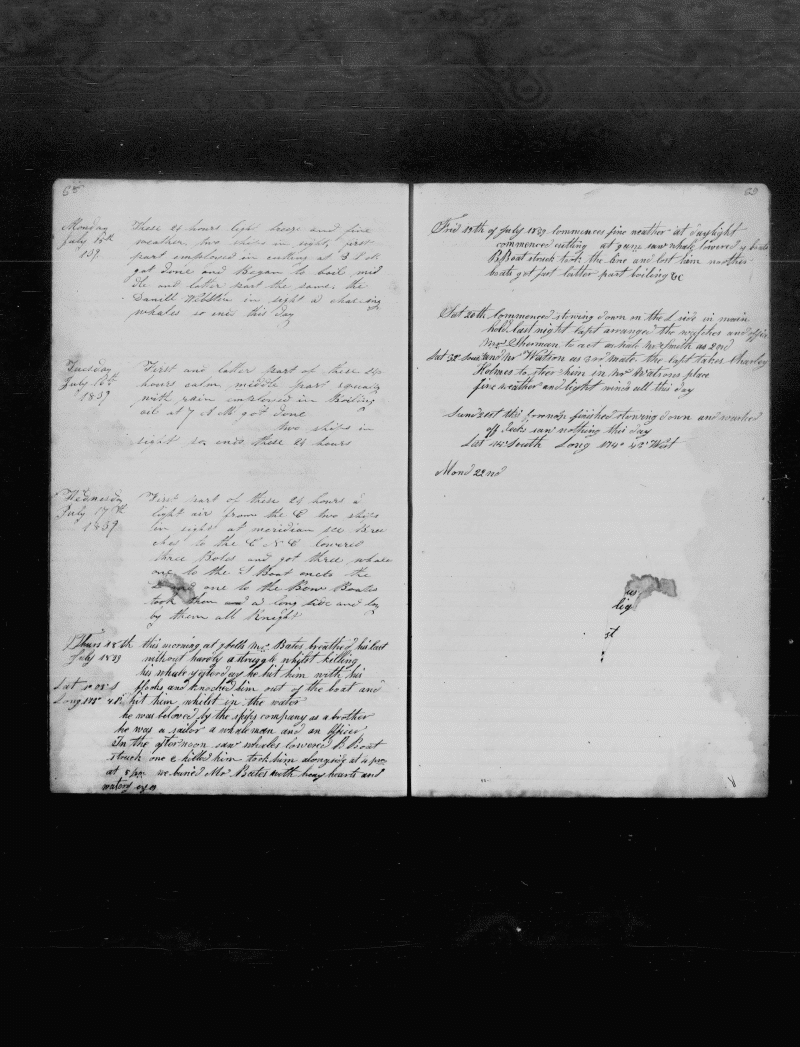 65
Monday These 24 hours light breeze and fine
July 15th weather two ships in sight first
1839 part employed in cuting at 3 P M
got done and Began to boil mid
dle and latter part the same the
Daniell Webbster in sight a chaseing
whales so ends this day
Tuesday First and latter part of these 24
July 16th hours calm middle part squaly
1839 with rain employed in Boiling
oil at 7 A M got done
two ships in
sight so ends these 24 hours
Wednesday First part of these 24 hours a
July 17th light air from the E two ships
1839 in sight at meridian see Bree
ches to the E N E lowered
three Botes and got three whale
one to the Boat one to the
one to the Bow Boates
took them a long side and
by them all Knight
Thurs 18th this morning at Mr Bates breathed his last
July 1839 without hardly a struggle whilst killing
his whale yesterday he hit him with his
Lat flooks and knocked him out of the boat and
Long hit him whilst in the water
he was beloved by the ships company as a brother
he was a sailor a whaleman and an officer
In the afternoon saw whales lowered B Boat
struck one & killed him took him alongside at 4 pm
at 8 pm we buried Mr Bates with heavy hearts and
watery eyes
69
Frid 19th of July 1839 commences fine weather at daylight
commenced cutting at saw whale lowered 4 boats
B Boat struck took the line and lost him no other
boats got fast latter part boiling &c
Sat 20th Commenced stowing down in the side in main
hold last night Capt arranged the watches and
Mr Sherman to act as mate Mr Smith as 2nd
Lat and Mr Watson as 3rd mate the Capt takes Charley
Holmes to steer him in Mr Watsons place
fine weather and light winds all this day
Sund 21st this forenoon finished stowing down and washed
off decks saw nothing this day
Lat South Long 174° West
Mond 22nd
lig
st